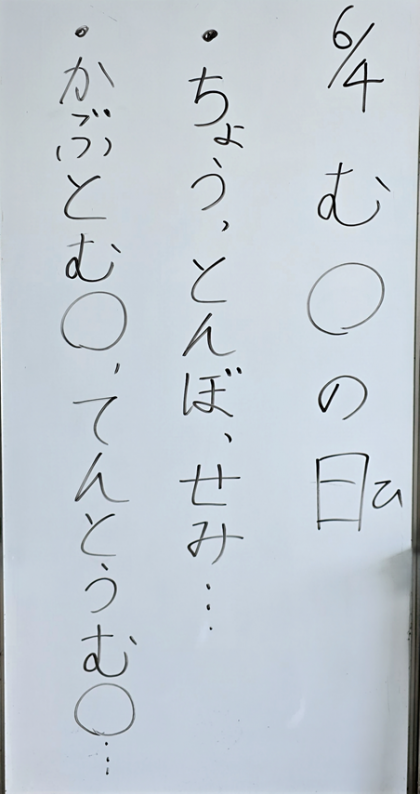 6/4 む○の日ひ
・ちょう、とんぼ、せみ…
・かぶとむ○、てんとうむ○…